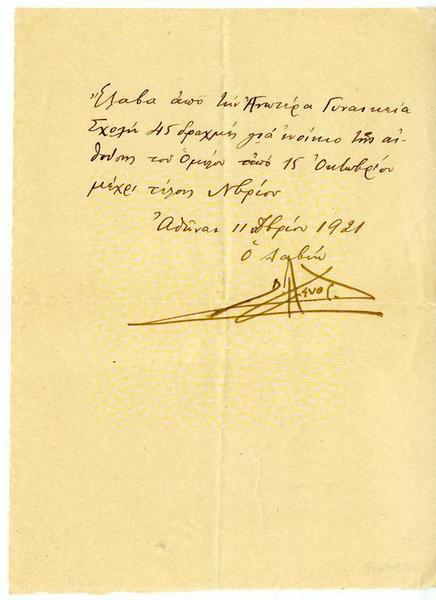 Ἔλαβα ἀπό τὴν Ἀνωτέρα Γυναικεία
Σχολή 45 δραχμές γιά ἐνοίκιο τῆς αἰ-
θούσης τοῦ Ὁμίλου ἀπό 15 Ὀκτωβρίου
μέχρι τέλους Νβρίου
Ἀθῆναι 11 Δβρίου 1921
Ὁ λαβών